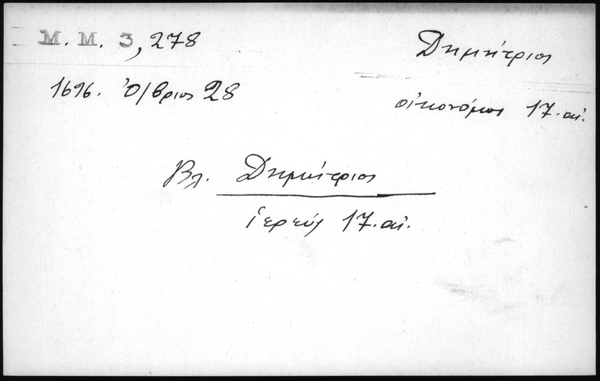 M. M. 3, 278
Δημήτριος
1696. Ὀ/βριος 28
οἰκονόμος 17. αἰ.
Βλ. Δημήτριος
ἱερεύς 17. αἰ.